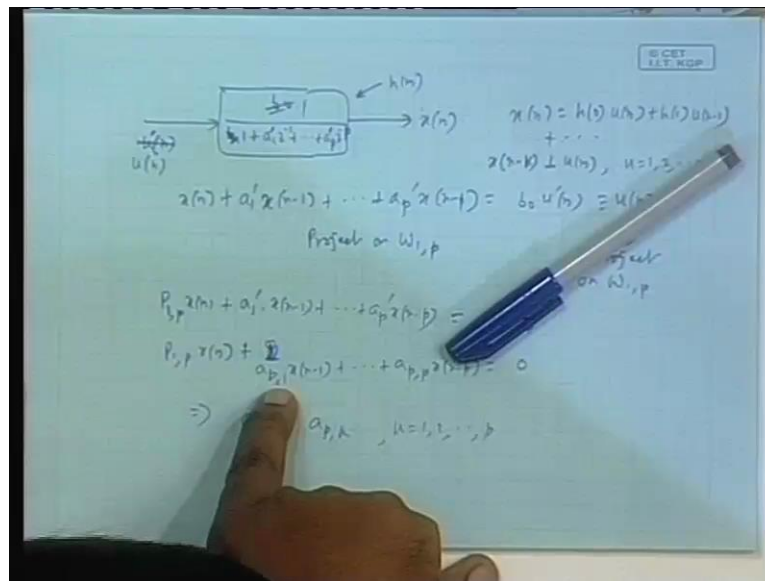 © CET
I.I.T. KGP
h(n)
1
1 + a₁'z⁻¹ + ... + aₚ'z⁻ᵖ
x(n)
u(n)
x(n) = h(0) u(n) + h(1) u(n-1)
+ ...
x(n-k) ⊥ u(n), k=1,2,
x(n) + a₁' x(n-1) + ... + aₚ' x(n-p) = b₀ u'(n) ≡ u(n)
Project on W₁,ₚ
on W₁,ₚ
P₁,ₚ x(n) + a₁' x(n-1) + ... + aₚ' x(n-p) =
P₁,ₚ x(n) + aₚ,₁ x(n-1) + ... + aₚ,ₚ x(n-p) = 0
⇒ aₚ,ₖ , k=1,2,...,p